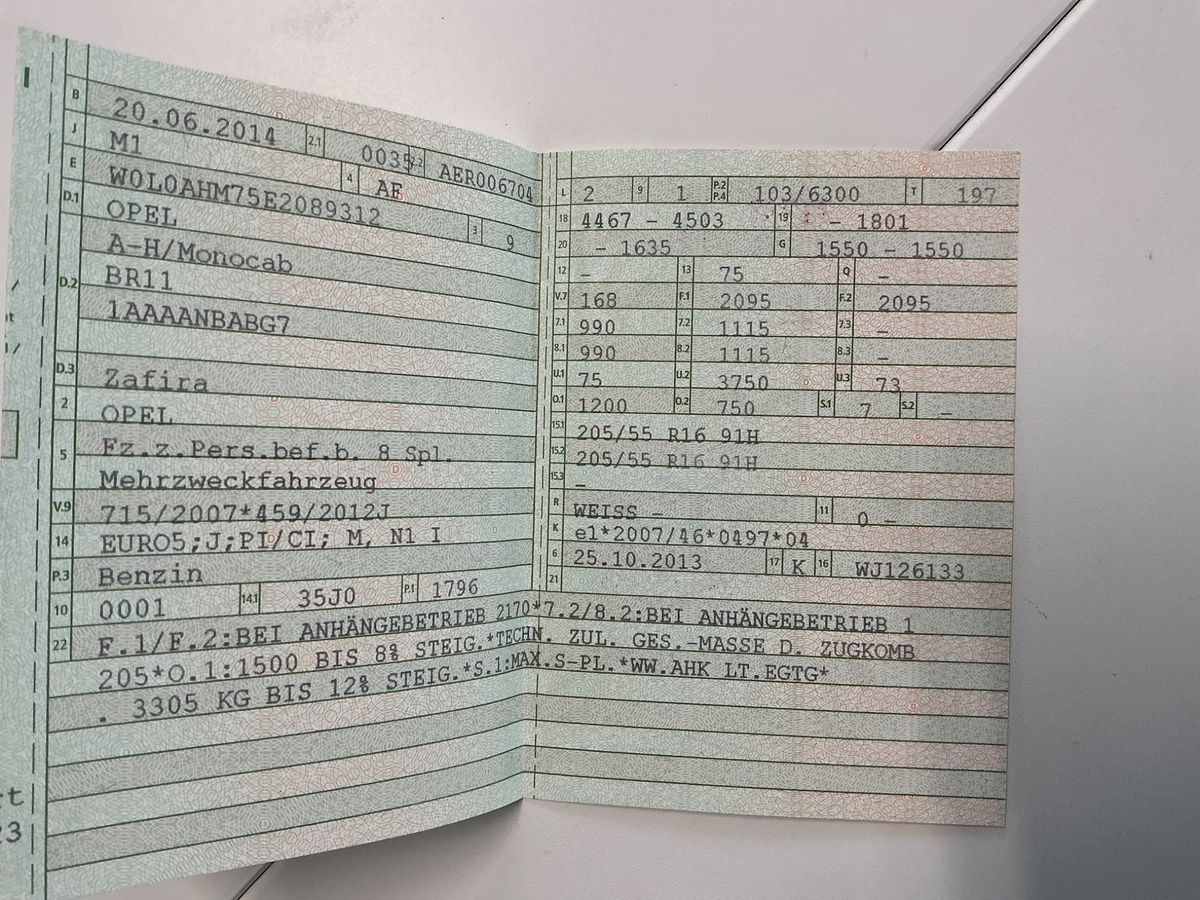 B 20.06.2014 2.1 0035 2.2 AER006704
J M1 4 AF
E W0L0AHM75E2089312 3 9
D.1 OPEL
D.2 A-H/Monocab
BR11
1AAAANBABG7
D.3 Zafira
2 OPEL
5 Fz.z.Pers.bef.b. 8 Spl.
Mehrzweckfahrzeug
V.9 715/2007*459/2012J
14 EURO5;J;PI/CI; M, N1 I
P.3 Benzin
10 0001 14.1 35J0 P.1 1796
L 2 9 1 P.2 P.4 103/6300 T 197
18 4467 - 4503 19 - 1801
20 - 1635 G 1550 - 1550
12 - 13 75 Q -
V.7 168 F.1 2095 F.2 2095
7.1 990 7.2 1115 7.3 -
8.1 990 8.2 1115 8.3 -
U.1 75 U.2 3750 U.3 73
O.1 1200 O.2 750 S.1 7 S.2 -
15.1 205/55 R16 91H
15.2 205/55 R16 91H
15.3 -
R WEISS - 11 0 -
K e1*2007/46*0497*04
6 25.10.2013 17 K 16 WJ126133
21
22 F.1/F.2:BEI ANHÄNGEBETRIEB 2170*7.2/8.2:BEI ANHÄNGEBETRIEB 1
205*O.1:1500 BIS 8% STEIG.*TECHN. ZUL. GES.-MASSE D. ZUGKOMB
. 3305 KG BIS 12% STEIG.*S.1:MAX.S-PL.*WW.AHK LT.EGTG*